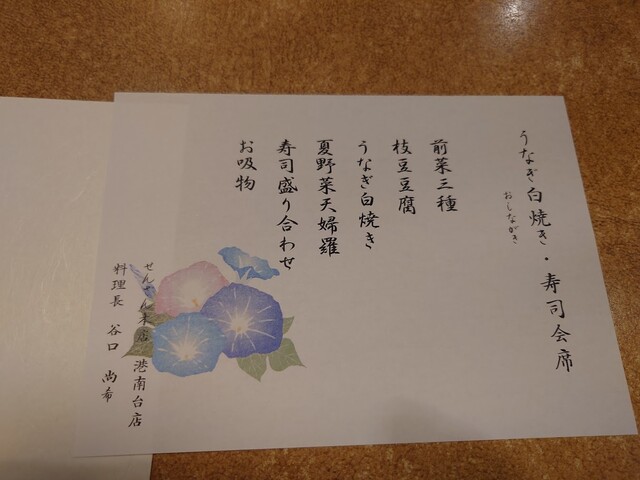 うなぎ白焼き・寿司会席
おしながき
前菜三種
枝豆豆腐
うなぎ白焼き
夏野菜天婦羅
寿司盛り合わせ
お吸物
せんざん本店 港南台店
料理長 谷口 尚希